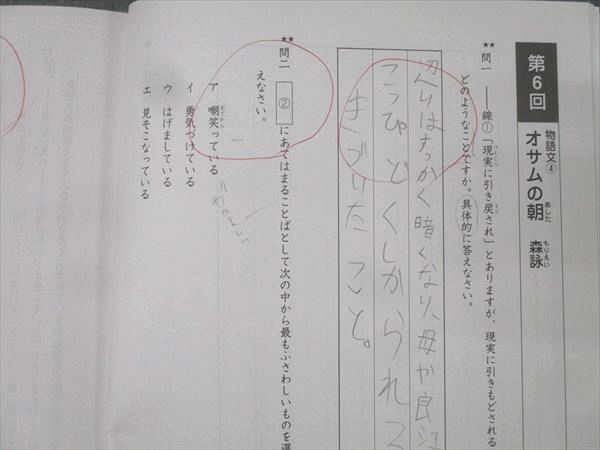 第6回
物語文④
オサムの朝
あした
森 詠
もり えい
★★
問一 ――線①「現実に引き戻され」とありますが、現実に引きもどされる
げんじつ
もど
どのようなことですか。具体的に答えなさい。
辺りはすっかく暗くなり、母が良江
こっぴどくしかられ
きづいたこと。
★★
問二 ② にあてはまることばとして次の中から最もふさわしいものを選
えなさい。
ア 嘲笑っている
イ 勇気づけている
ウ はげましている
エ 見そこなっている